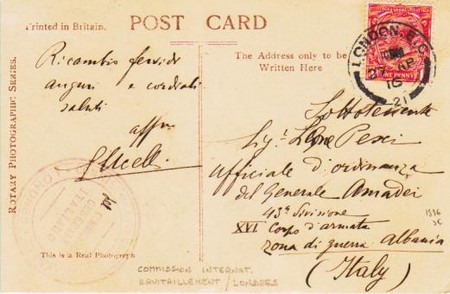 Printed in Britain.
POST CARD
The Address only to be
Written Here
ROTARY PHOTOGRAPHIC SERIES.
This is a Real Photograph
LONDON. E.C.
16
21
ONE PENNY
Ricambio fervidi
auguri e cordiali
saluti
affmo
Sottotenente
Sigr. Leone Pesci
Ufficiale d'ordinanza
del Generale Amadei
43a Divisione
XVI Corpo d'armata
zona di guerra Albania
(Italy)
COMMISSION INTERNAT.
RAVITAILLEMENT / LONDRES